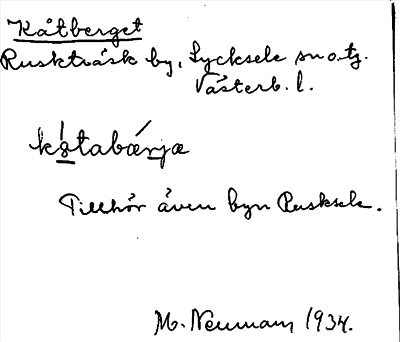 Kåtberget
Ruskträsk by, Lycksele sn o. tg.
Västerb. l.
kåtabærjæ
Tillhör även byn Rusksele.
M. Neuman, 1934.